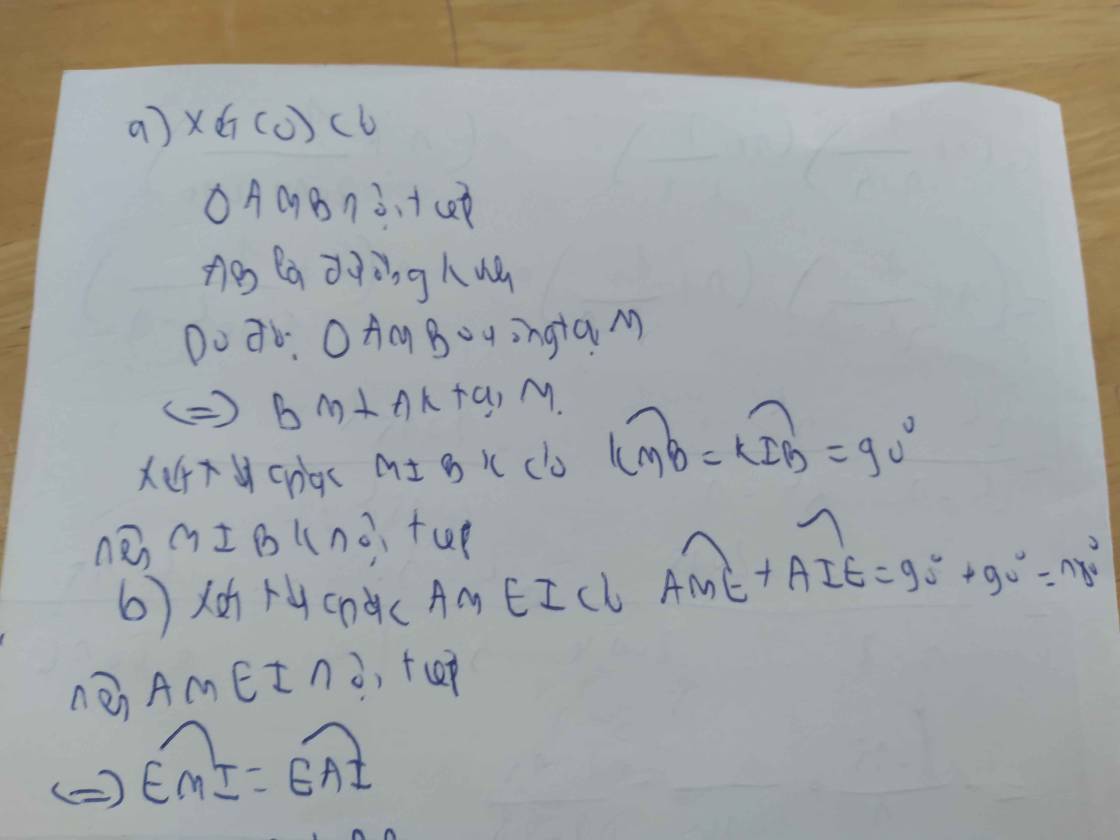 a) Xét (O) có
△AMB nội tiếp
AB là đường kính
Do đó: △AMB vuông tại M
<=> BM ⊥ AK tại M.
Xét tứ giác MIBK có KMB = KIB = 90°
nên MIBK nội tiếp
b) Xét tứ giác AMEI có AME + AIE = 90° + 90° = 180°
nên AMEI nội tiếp
<=> EMI = EAI